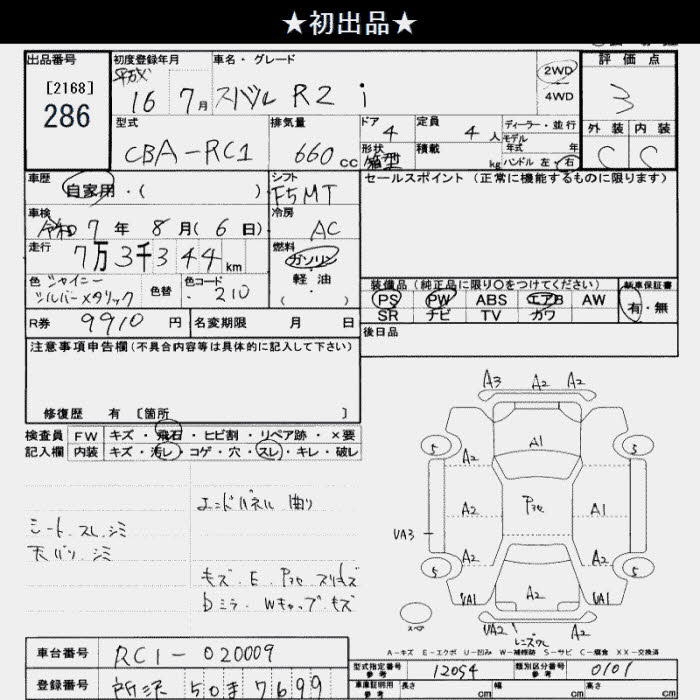 ★初出品★
出品番号
[2168]
286
初度登録年月
平成
16 7月
車名・グレード
スバル R2 i
2WD
4WD
評価点
3
外装 内装
C C
型式
CBA-RC1
排気量
660 cc
ドア
4
形状
箱型
定員
4人
積載
kg
ディーラー・並行
モデル
年式 年
ハンドル 左・右
車歴
自家用・( )
シフト
F5MT
セールスポイント (正常に機能するものに限ります)
車検
令和7年8月(6日)
冷房
AC
走行
7万3千344km
燃料
ガソリン
軽油
( )
色 シャイニー
シルバーメタリック
色替
色コード
・210
装備品 (純正品に限り○をつけてください)
PS PW ABS エアB AW
SR ナビ TV カワ
新車保証書
有・無
R券 9910円
名変期限 月 日
後日品
注意事項申告欄 (不具合内容等は具体的に記入して下さい)
修復歴 有 [箇所 ]
検査員
記入欄
FW キズ・飛石・ヒビ割・リペア跡・×要
内装 キズ・汚レ・コゲ・穴・スレ・キレ・破レ
シート スレ.シミ
天バリ シミ
エンドパネル 曲り
キズ・E
Dミラー Wキャップ キズ
A3 A2 A2
A1
5 5
A2
A2 A1
UA3
A2 A2
5 5
UA1 A2 UA1
スペア
UA2 A2
A-キズ E-エクボ U-凹み W-補修跡 S-サビ C-腐食 XX-交換済
車台番号 RC1-020009
型式指定番号
参考
12054
類別区分番号
参考
0101
登録番号 所沢 50ま7699
車庫証明用
参考
長さ cm 幅 cm 高さ cm